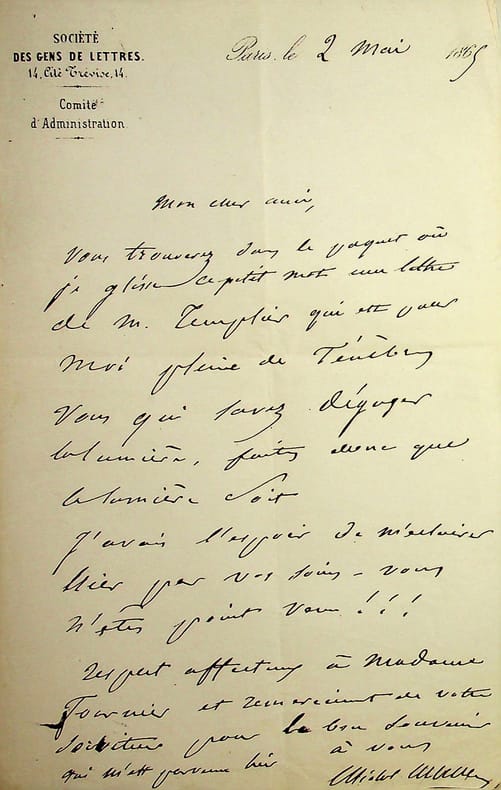 SOCIÉTÉ
DES GENS DE LETTRES.
14, Cité Trévise, 14.
Comité
d'Administration.
Paris, le 2 Mai 1865
Mon cher ami,
Vous trouverez dans le paquet où
je glisse ce petit mot une lettre
de M. Templier qui est pour
moi pleine de Ténèbres
Vous qui savez dégager
la lumière, faites donc que
la lumière soit
J'avais l'espoir de m'éclairer
hier par vos soins - vous
n'êtes point venu !!!
respect affectueux à Madame
Fournier et remerciement de votre
serviteur pour le bon souvenir
qui m'est parvenu hier à vous
Michel